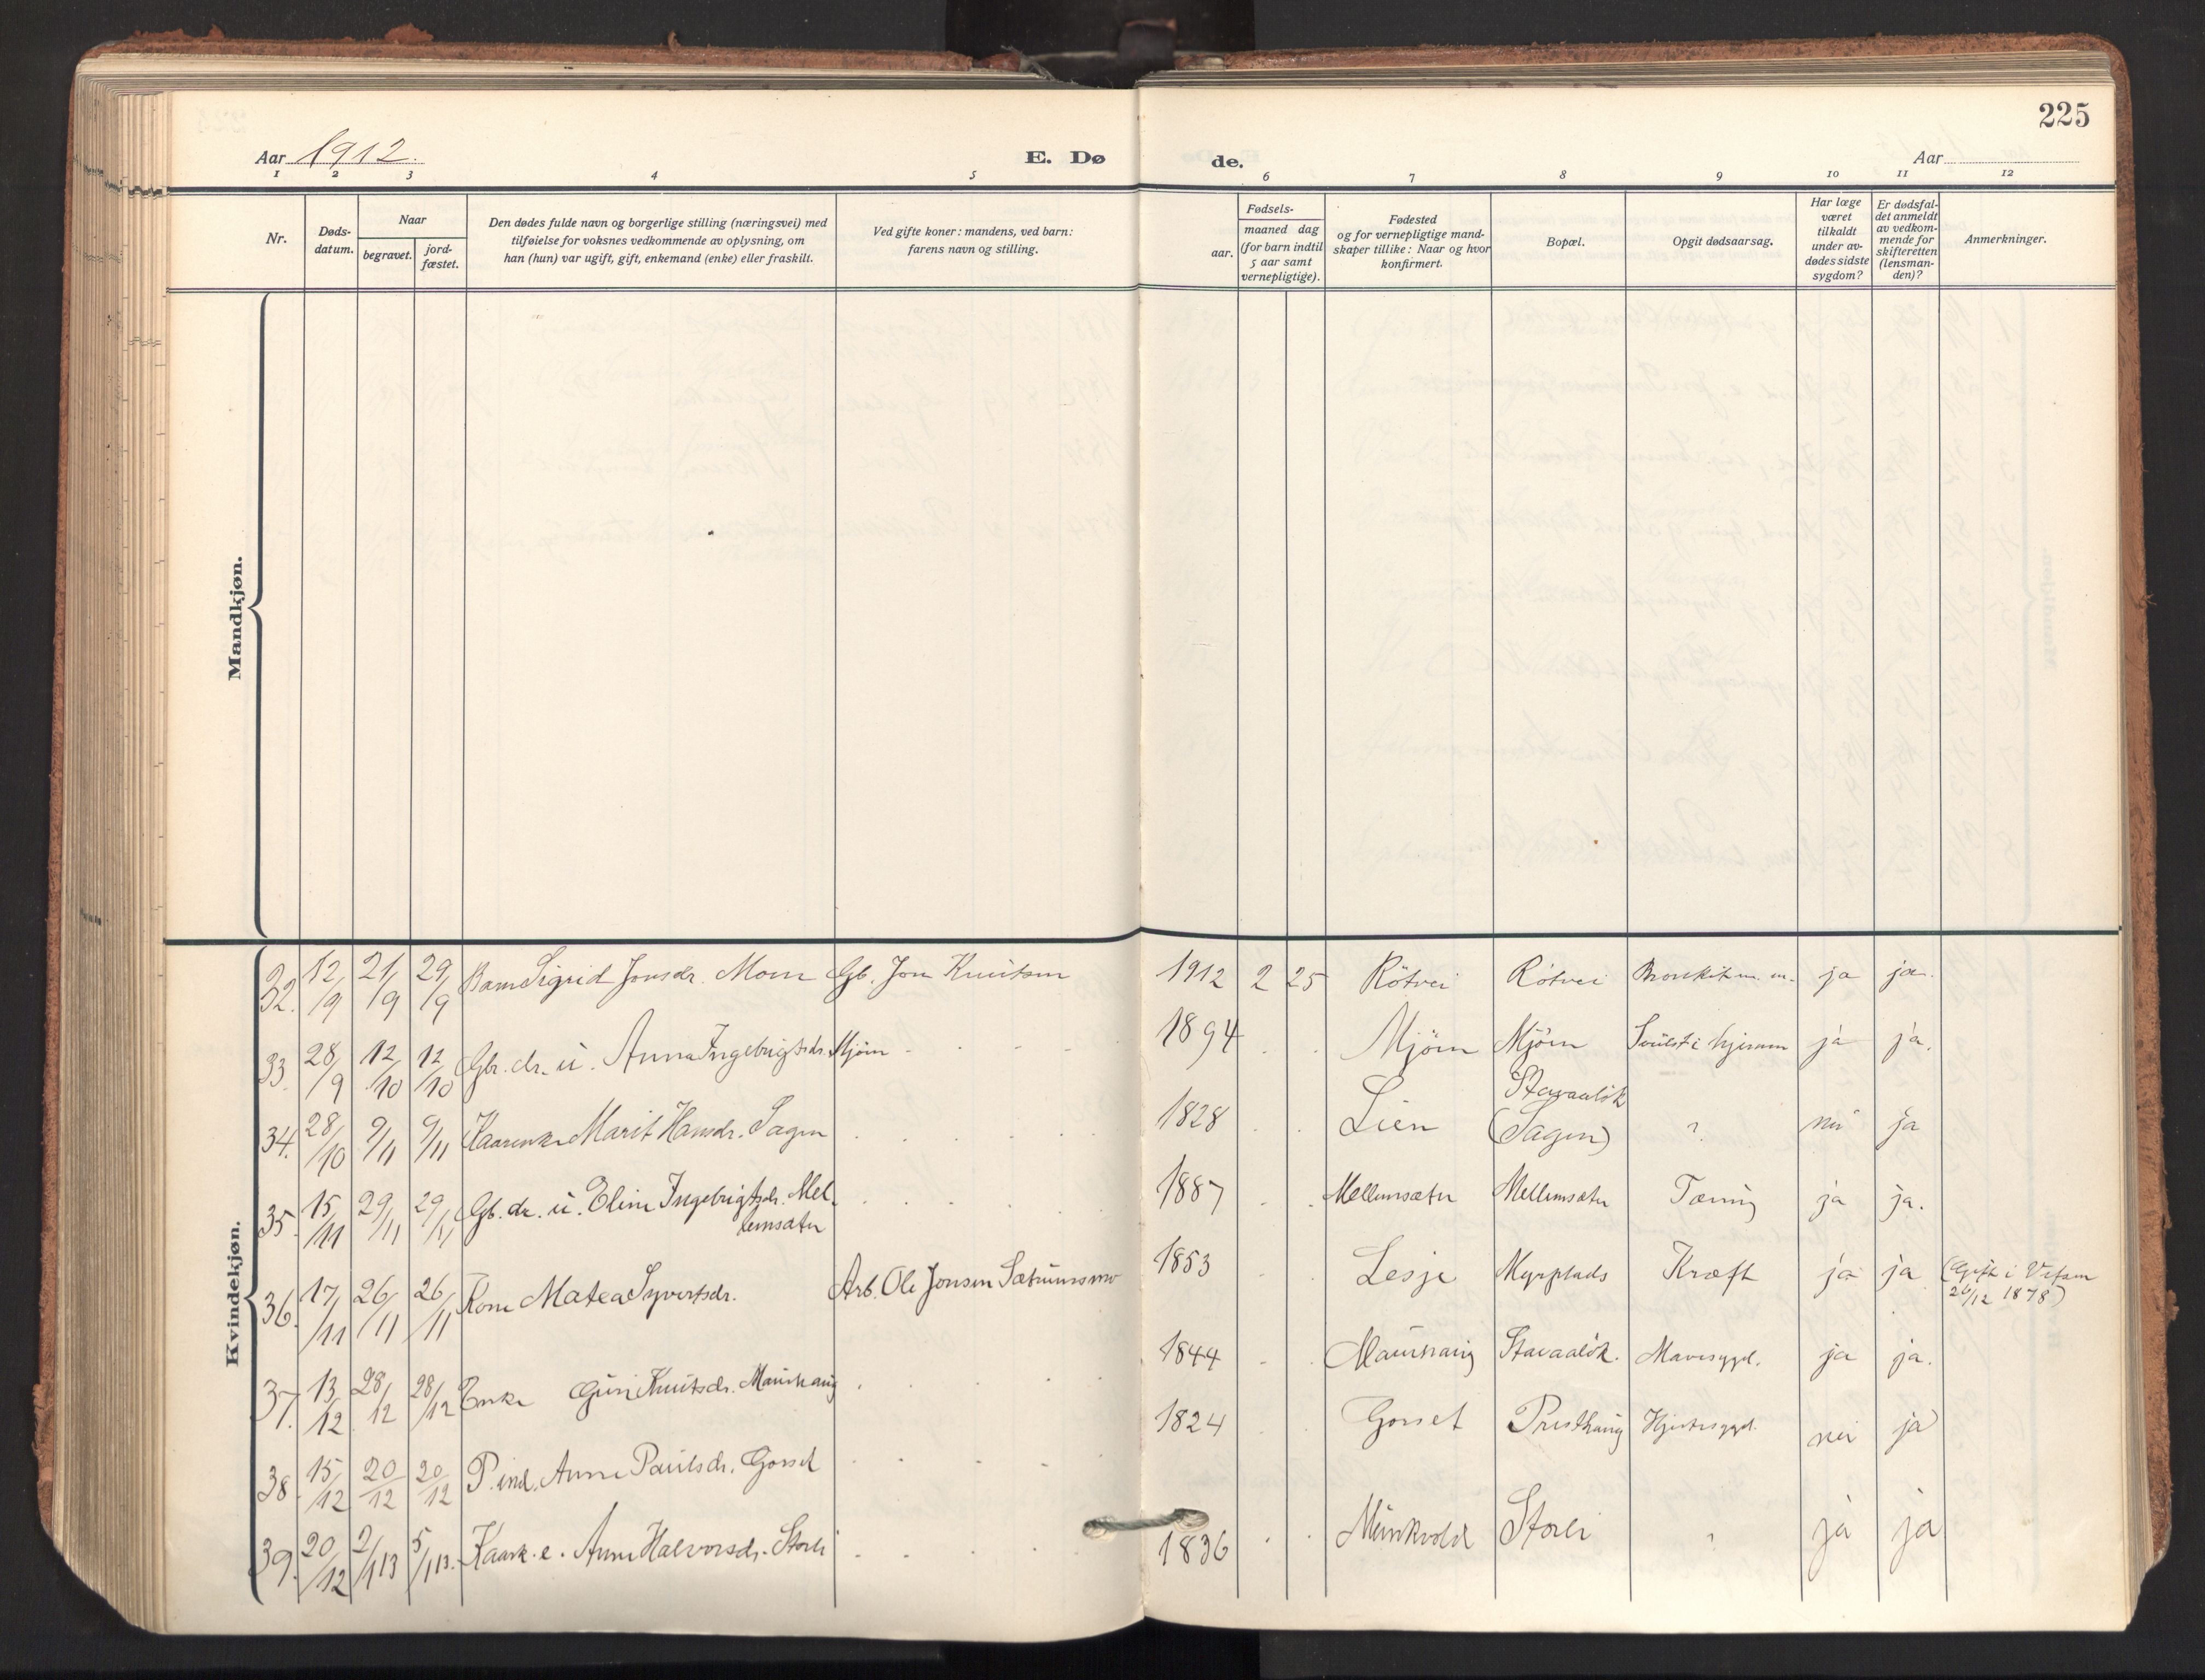 225
Aar 1912.
E. Dø
de.
Aar
1 2 3 4 5 6 7 8 9 10 11 12
Nr.
Døds-
datum.
Naar
begravet.
jord-
fæstet.
Den dødes fulde navn og borgerlige stilling (næringsvei) med
tilføielse for voksnes vedkommende av oplysning, om
han (hun) var ugift, gift, enkemand (enke) eller fraskilt.
Ved gifte koner: mandens, ved barn:
farens navn og stilling.
Fødsels-
aar.
maaned dag
(for barn indtil
5 aar samt
vernepligtige).
Fødested
og for vernepligtige mand-
skaper tillike: Naar og hvor
konfirmert.
Bopæl.
Opgit dødsaarsag.
Har læge
været
tilkaldt
under av-
dødes sidste
sygdom?
Er dødsfal-
det anmeldt
av vedkom-
mende for
skifteretten
(lensman-
den)?
Anmerkninger.
Mandkjøn.
Kvindekjøn.
32. 12/9 21/9 29/9 Barn Sigrid Jonsdr. Moen Gb. Jon Knutsen 1912 2 25 Rötvei Rötvei ja ja.
33. 28/9 12/10 12/10 Gbr. dr. u. Anna Ingebrigtsdr. Mjöen 1894 Mjöen Mjöen Svulst i hjernen ja ja.
34. 28/10 9/11 9/11 Kaarenke Marit Hansdr. Sagen 1828 Lien Stavaalök (Sagen) ? nei ja
35. 15/11 29/11 29/11 Gb. dr. u. Eline Ingebrigtsdr. Mel-
lemsæter 1887 Mellemsæter Mellemsæter Tæring ja ja.
36. 17/11 26/11 26/11 Kone Matea Syvertsdr. Arb. Ole Jonsen Sætrumsmo 1853 Lesje Myrplads Kræft ja ja (Gift i Vefsen
26/12 1878)
37. 13/12 28/12 28/12 Enke Guri Knutsdr. Maurhaug 1844 Maurhaug Stavaalök. Mavesygd. ja ja.
38. 15/12 20/12 20/12 P. ind. Anne Paulsdr. Gorset 1824 Gorset Presthaug Hjertesygd. nei ja
39. 20/12 2/1 13 5/1 13. Kaark. e. Anne Halvorsdr. Storli 1836 Munkvold Storli ? ja ja